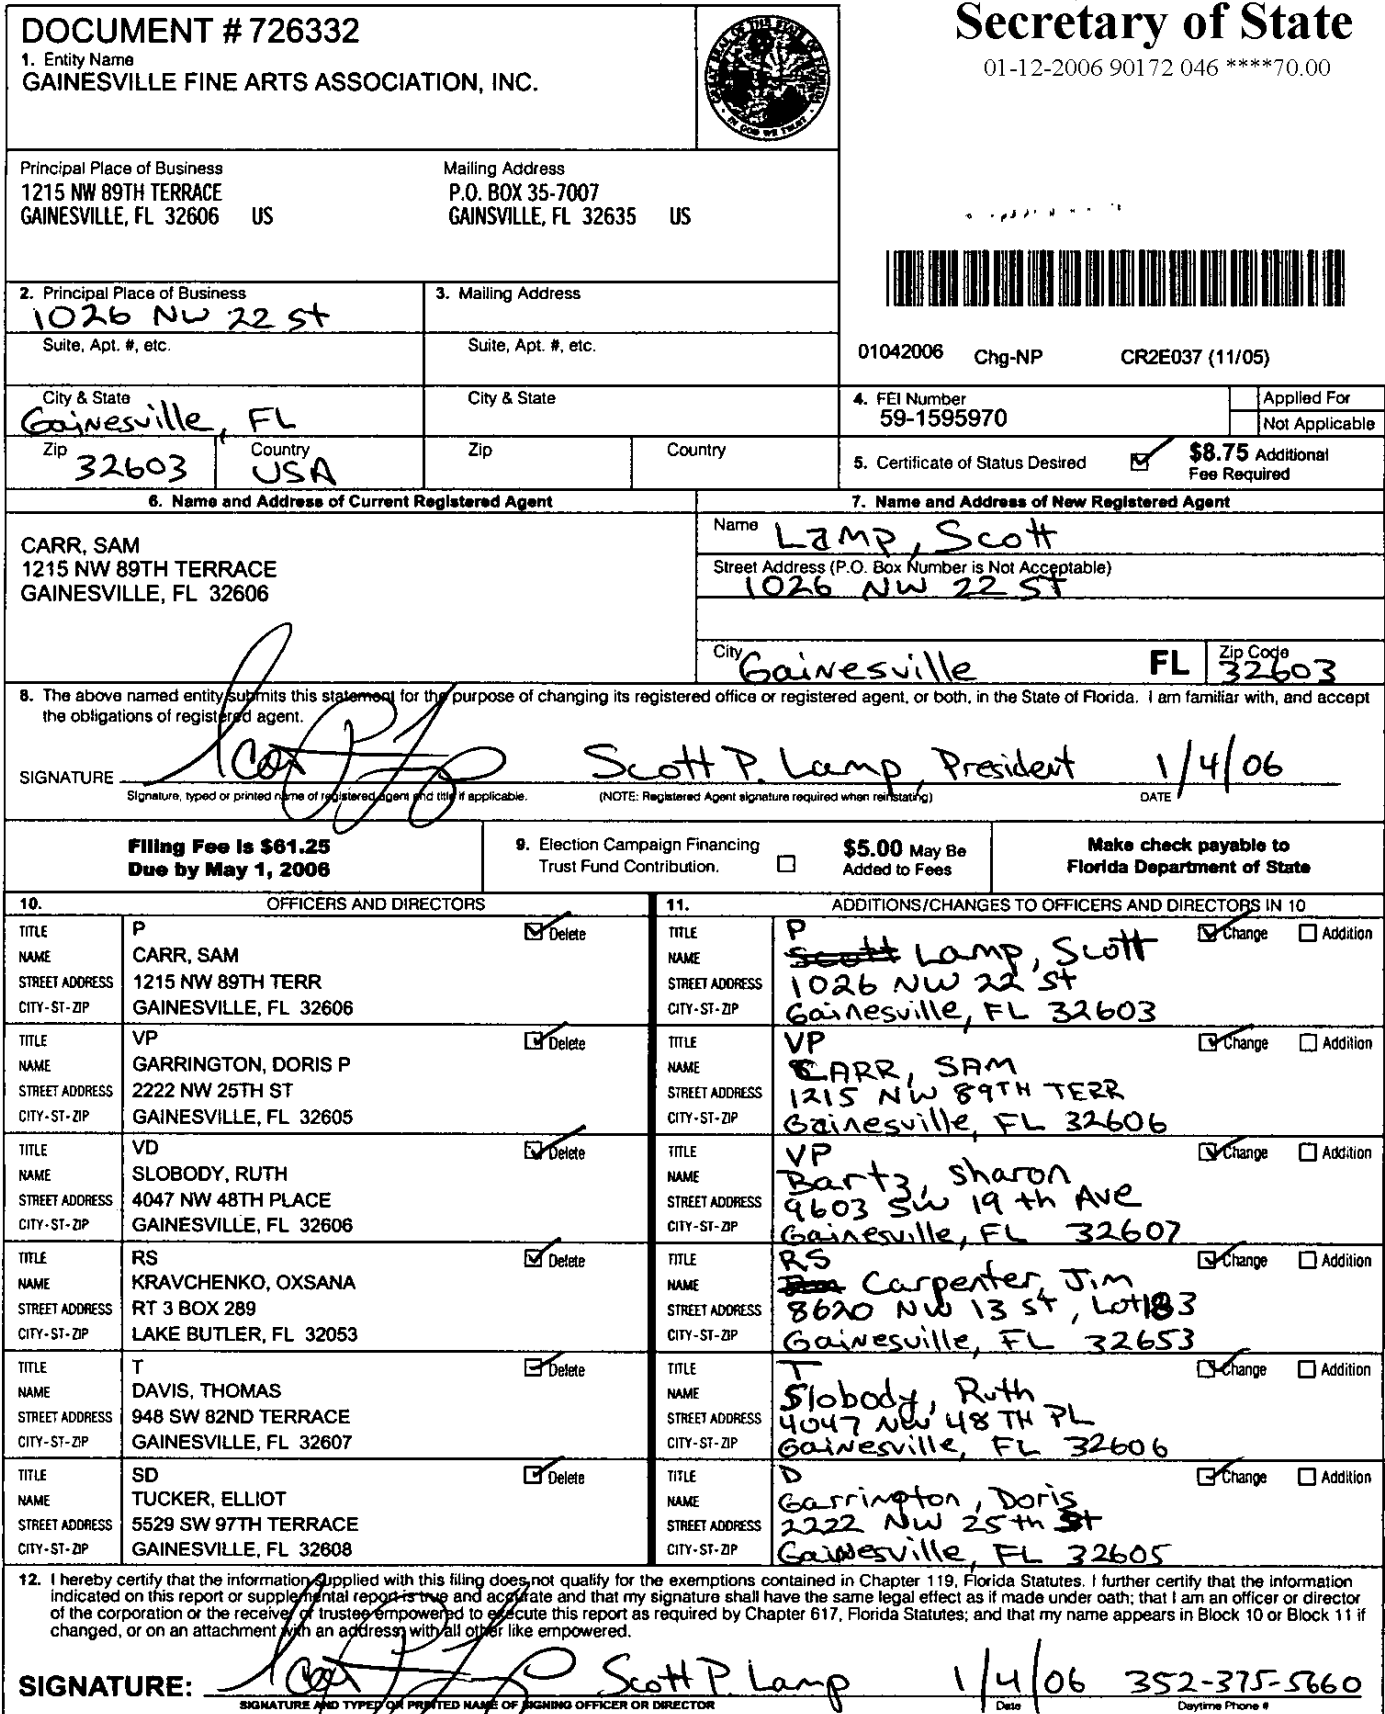 DOCUMENT # 726332
1. Entity Name
GAINESVILLE FINE ARTS ASSOCIATION, INC.
Secretary of State
01-12-2006 90172 046 ****70.00
Principal Place of Business
1215 NW 89TH TERRACE
GAINESVILLE, FL 32606 US
Mailing Address
P.O. BOX 35-7007
GAINSVILLE, FL 32635 US
2. Principal Place of Business
1026 NW 22 St
3. Mailing Address
Suite, Apt. #, etc.
Suite, Apt. #, etc.
01042006 Chg-NP CR2E037 (11/05)
City & State
Gainesville, FL
City & State
4. FEI Number
59-1595970
Applied For
Not Applicable
Zip
32603
Country
USA
Zip
Country
5. Certificate of Status Desired
$8.75 Additional
Fee Required
6. Name and Address of Current Registered Agent
CARR, SAM
1215 NW 89TH TERRACE
GAINESVILLE, FL 32606
7. Name and Address of New Registered Agent
Name Lamp, Scott
Street Address (P.O. Box Number is Not Acceptable)
1026 NW 22 St
City Gainesville FL Zip Code 32603
8. The above named entity submits this statement for the purpose of changing its registered office or registered agent, or both, in the State of Florida. I am familiar with, and accept
the obligations of registered agent.
SIGNATURE Scott P. Lamp, President 1/4/06
Signature, typed or printed name of registered agent and title if applicable. (NOTE: Registered Agent signature required when reinstating) DATE
Filing Fee is $61.25
Due by May 1, 2006
9. Election Campaign Financing
Trust Fund Contribution.
$5.00 May Be
Added to Fees
Make check payable to
Florida Department of State
10. OFFICERS AND DIRECTORS
TITLE P Delete
NAME CARR, SAM
STREET ADDRESS 1215 NW 89TH TERR
CITY-ST-ZIP GAINESVILLE, FL 32606
TITLE VP Delete
NAME GARRINGTON, DORIS P
STREET ADDRESS 2222 NW 25TH ST
CITY-ST-ZIP GAINESVILLE, FL 32605
TITLE VD Delete
NAME SLOBODY, RUTH
STREET ADDRESS 4047 NW 48TH PLACE
CITY-ST-ZIP GAINESVILLE, FL 32606
TITLE RS Delete
NAME KRAVCHENKO, OXSANA
STREET ADDRESS RT 3 BOX 289
CITY-ST-ZIP LAKE BUTLER, FL 32053
TITLE T Delete
NAME DAVIS, THOMAS
STREET ADDRESS 948 SW 82ND TERRACE
CITY-ST-ZIP GAINESVILLE, FL 32607
TITLE SD Delete
NAME TUCKER, ELLIOT
STREET ADDRESS 5529 SW 97TH TERRACE
CITY-ST-ZIP GAINESVILLE, FL 32608
11. ADDITIONS/CHANGES TO OFFICERS AND DIRECTORS IN 10
TITLE P Change Addition
NAME Scott Lamp, Scott
STREET ADDRESS 1026 NW 22 St
CITY-ST-ZIP Gainesville, FL 32603
TITLE VP Change Addition
NAME CARR, SAM
STREET ADDRESS 1215 NW 89TH TERR
CITY-ST-ZIP Gainesville, FL 32606
TITLE VP Change Addition
NAME Bartz, Sharon
STREET ADDRESS 9603 SW 19th Ave
CITY-ST-ZIP Gainesville, FL 32607
TITLE RS Change Addition
NAME Carpenter, Jim
STREET ADDRESS 8620 NW 13 St, Lot 183
CITY-ST-ZIP Gainesville, FL 32653
TITLE T Change Addition
NAME Slobody, Ruth
STREET ADDRESS 4047 NW 48TH PL
CITY-ST-ZIP Gainesville, FL 32606
TITLE D Change Addition
NAME Garrington, Doris
STREET ADDRESS 2222 NW 25th St
CITY-ST-ZIP Gainesville, FL 32605
12. I hereby certify that the information supplied with this filing does not qualify for the exemptions contained in Chapter 119, Florida Statutes. I further certify that the information
indicated on this report or supplemental report is true and accurate and that my signature shall have the same legal effect as if made under oath; that I am an officer or director
of the corporation or the receiver or trustee empowered to execute this report as required by Chapter 617, Florida Statutes; and that my name appears in Block 10 or Block 11 if
changed, or on an attachment with an address, with all other like empowered.
SIGNATURE: Scott P. Lamp 1/4/06 352-375-5660
SIGNATURE AND TYPED OR PRINTED NAME OF SIGNING OFFICER OR DIRECTOR Date Daytime Phone #